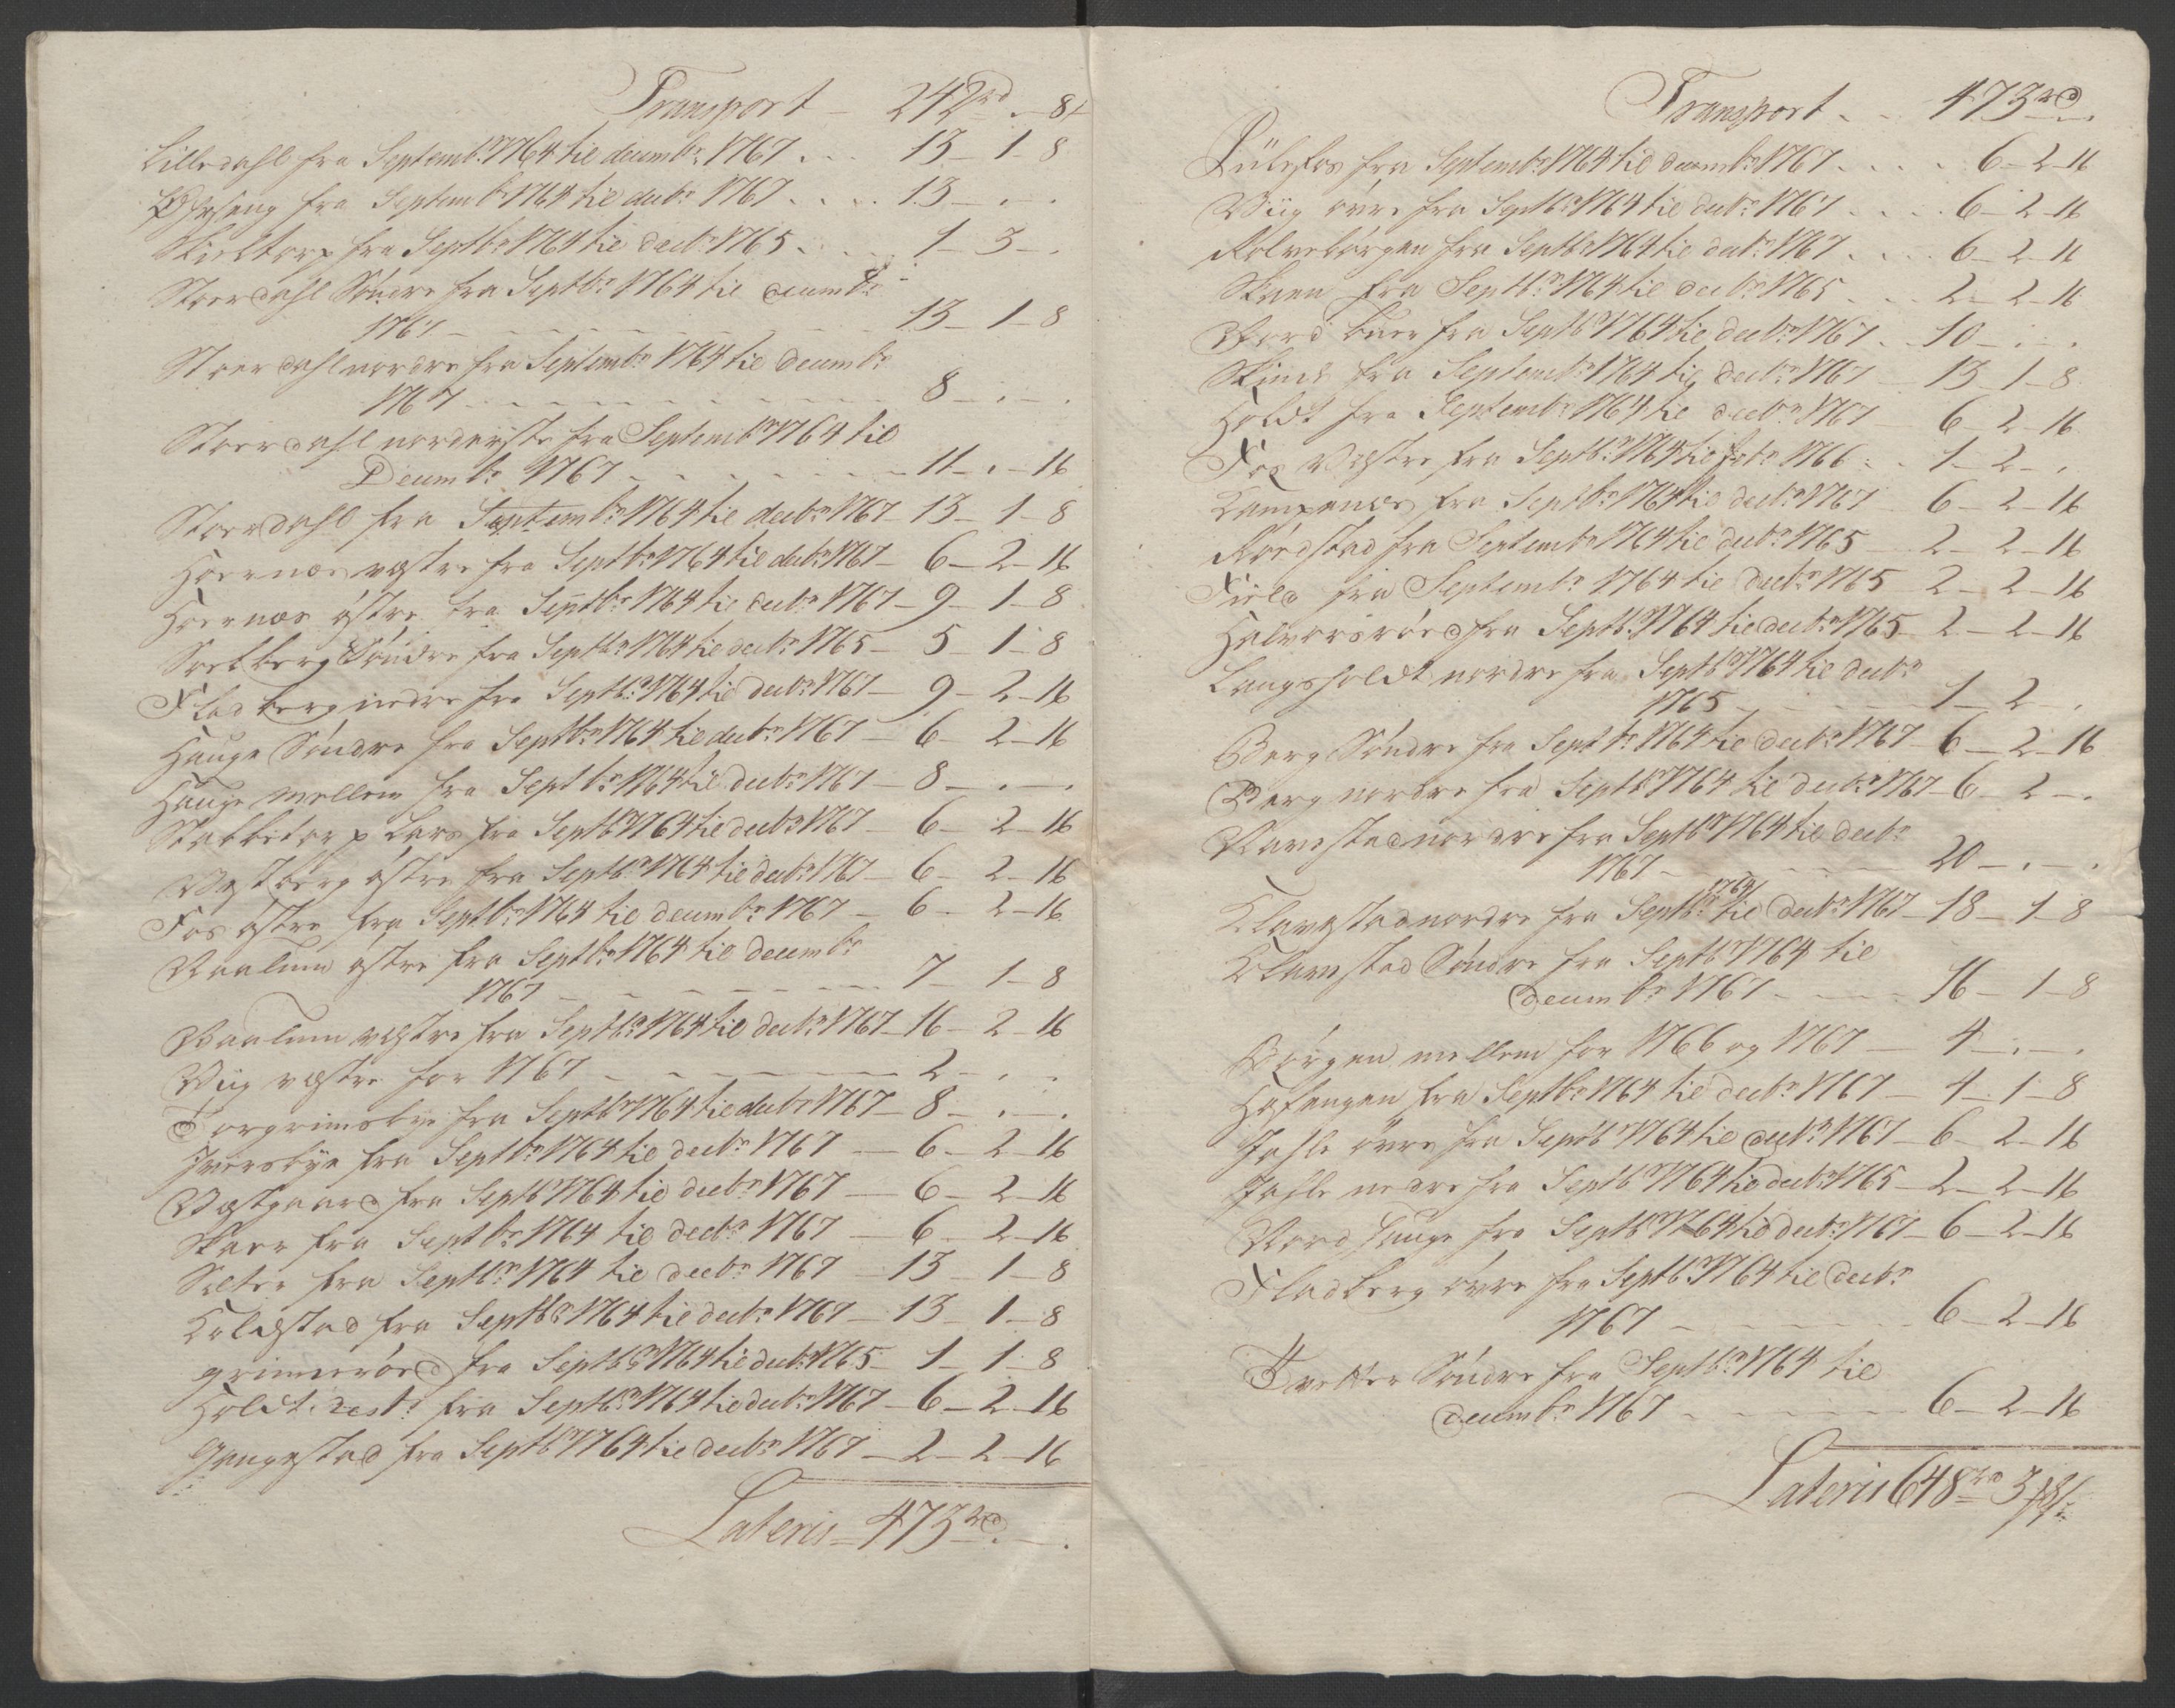 Transport – 242 rd . – 8 /
Lilledahl fra Septembr 1764 til decembr 1767 . . . 13 – 1 – 8
fra Septembr 1764 til decbr 1767 . . . . 13 – . – .
Skieltorp fra Septbr 1764 til decbr 1765 . . . 1 – 3 – .
Stoerdahl Søndre fra Septbr 1764 til decembr
1767 – – – – 13 – 1 – 8
Stoerdahl nordre fra Septembr 1764 til decembr
1767 – – – – 8 – . – .
Stoerdahl norderste fra Septembr 1764 til
Decembr 1767 – – – – 11 – . – 16
Stoerdahl fra Septembr 1764 til decbr 1767 – 13 – 1 – 8
Hoernæs vestre fra Septbr 1764 til decbr 1767 – 6 – 2 – 16
Hoernæs østre fra Septbr 1764 til decbr 1767 – 9 – 1 – 8
Søndre fra Septbr 1764 til decbr 1765 – 5 – 1 – 8
Fladberg nedre fra Septbr 1764 til decbr 1767 – 9 – 2 – 16
Hauge Søndre fra Septbr 1764 til decbr 1767 – 6 – 2 – 16
Hauge mellem fra Septbr 1764 til decbr 1767 – 8 – . – .
Stabbetorp Lars fra Septbr 1764 til decbr 1767 – 6 – 2 – 16
Vestberg østre fra Septbr 1764 til decbr 1767 – 6 – 2 – 16
Fos østre fra Septbr 1764 til decembr 1767 – 6 – 2 – 16
Vaalum østre fra Septbr 1764 til decembr
1767 – – – – 7 – 1 – 8
Vaalum vestre fra Septbr 1764 til decbr 1767 – 16 – 2 – 16
Viig vestre for 1767 – – – – 2 – . – .
Torgrimsbye fra Septbr 1764 til decbr 1767 – 8 – . – .
Iversbye fra Septbr 1764 til decbr 1767 – 6 – 2 – 16
Vestgaard fra Septbr 1764 til decbr 1767 – 6 – 2 – 16
Skaar fra Septbr 1764 til decbr 1767 – 6 – 2 – 16
Sæter fra Septbr 1764 til decbr 1767 – 13 – 1 – 8
Kolstad fra Septbr 1764 til decbr 1767 – 13 – 1 – 8
grimerøed fra Septbr 1764 til decbr 1765 – 1 – 1 – 8
Holdt fra Septbr 1764 til decbr 1767 – 6 – 2 – 16
Gaugestad fra Septbr 1764 til decbr 1767 – 2 – 2 – 16
Lateris – 473 rd . – .
Transport . . 473 rd . .
fra Septembr 1764 til decembr 1767 . . . . 6 – 2 – 16
Viig øvre fra Septbr 1764 til decbr 1767 . . . . 6 – 2 – 16
Kolvebørgen fra Septbr 1764 til decbr 1767 . . . . 6 – 2 – 16
fra Septbr 1764 til decbr 1765 . . . 2 – 2 – 16
fra Septbr 1764 til decbr 1767 . . 10 – . – .
fra Septembr 1764 til decbr 1767 – 13 – 1 – 8
Holdt fra Septembr 1764 til decbr 1767 – 6 – 2 – 16
Fos Vestre fra Septbr 1764 til 1766 . . 1 – 2 – .
fra Septbr 1764 til decbr 1767 – 6 – 2 – 16
Røedstad fra Septembr 1764 til decbr 1765 – 2 – 2 – 16
Field fra Septembr 1764 til decbr 1765 – 2 – 2 – 16
Halvorsrøed fra Septbr 1764 til decbr 1765 – 2 – 2 – 16
Langsholdt nordre fra Septbr 1764 til decbr
1765 – – – 1 – 2 – .
Berg Søndre fra Septbr 1764 til decbr 1767 – 6 – 2 – 16
Berg nordre fra Septbr 1764 til decbr 1767 – 6 – 2 – .
Navestad nordre fra Septbr 1764 til decbr
1767 – – – – 20 – . – .
Klavestad nordre fra Septbr 1764 til decbr 1767 – 18 – 1 – 8
Klavestad Søndre fra Septbr 1764 til
decembr 1767 – – – – 16 – 1 – 8
Børgen mellem for 1766 og 1767 – 4 – . – .
Hafengen fra Septbr 1764 til decbr 1767 – 4 – 1 – 8
Jahle øvre fra Septbr 1764 til decbr 1767 – 6 – 2 – 16
Jahle nedre fra Septbr 1764 til decbr 1765 – 2 – 2 – 16
Nord Hauge fra Septbr 1764 til decbr 1767 – 6 – 2 – 16
Fladberg øvre fra Septbr 1764 til decbr
1767 – – – – 6 – 2 – 16
Tvetter Søndre fra Septbr 1764 til
decembr 1767 – – – – 6 – 2 – 16
Lateris 648 rd 3